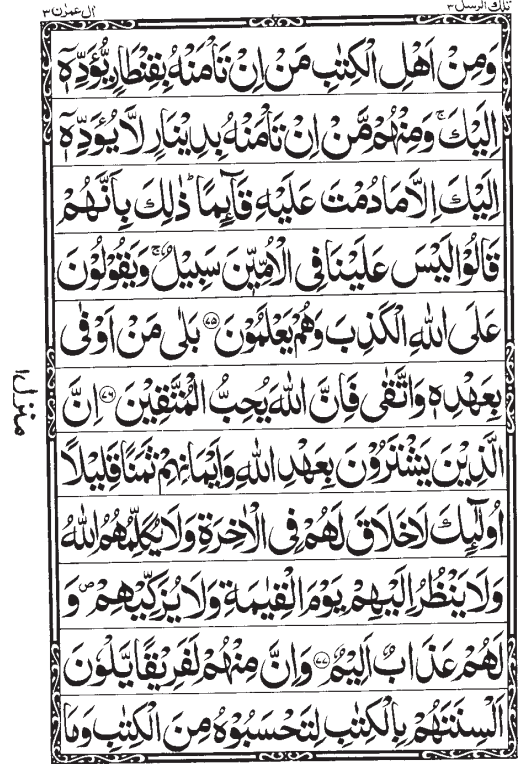 تلك الرسل ٣
ال عمرٰن ٣
وَمِنْ اَهْلِ الْكِتٰبِ مَنْ اِنْ تَاْمَنْهُ بِقِنْطَارٍ يُّؤَدِّهٖۤ
اِلَيْكَ ۚ وَمِنْهُمْ مَّنْ اِنْ تَاْمَنْهُ بِدِيْنَارٍ لَّا يُؤَدِّهٖۤ
اِلَيْكَ اِلَّا مَا دُمْتَ عَلَيْهِ قَآئِمًا ؕ ذٰلِكَ بِاَنَّهُمْ
قَالُوْا لَيْسَ عَلَيْنَا فِى الْاُمِّيّٖنَ سَبِيْلٌ ۚ وَيَقُوْلُوْنَ
عَلَى اللّٰهِ الْكَذِبَ وَهُمْ يَعْلَمُوْنَ ۝۷۵ بَلٰى مَنْ اَوْفٰى
بِعَهْدِهٖ وَاتَّقٰى فَاِنَّ اللّٰهَ يُحِبُّ الْمُتَّقِيْنَ ۝۷۶ اِنَّ
الَّذِيْنَ يَشْتَرُوْنَ بِعَهْدِ اللّٰهِ وَاَيْمَانِهِمْ ثَمَنًا قَلِيْلًا
اُولٰٓئِكَ لَا خَلَاقَ لَهُمْ فِى الْاٰخِرَةِ وَلَا يُكَلِّمُهُمُ اللّٰهُ
وَلَا يَنْظُرُ اِلَيْهِمْ يَوْمَ الْقِيٰمَةِ وَلَا يُزَكِّيْهِمْ ۖ وَ
لَهُمْ عَذَابٌ اَلِيْمٌ ۝۷۷ وَاِنَّ مِنْهُمْ لَفَرِيْقًا يَّلْوٗنَ
اَلْسِنَتَهُمْ بِالْكِتٰبِ لِتَحْسَبُوْهُ مِنَ الْكِتٰبِ وَمَا
منزل ۱